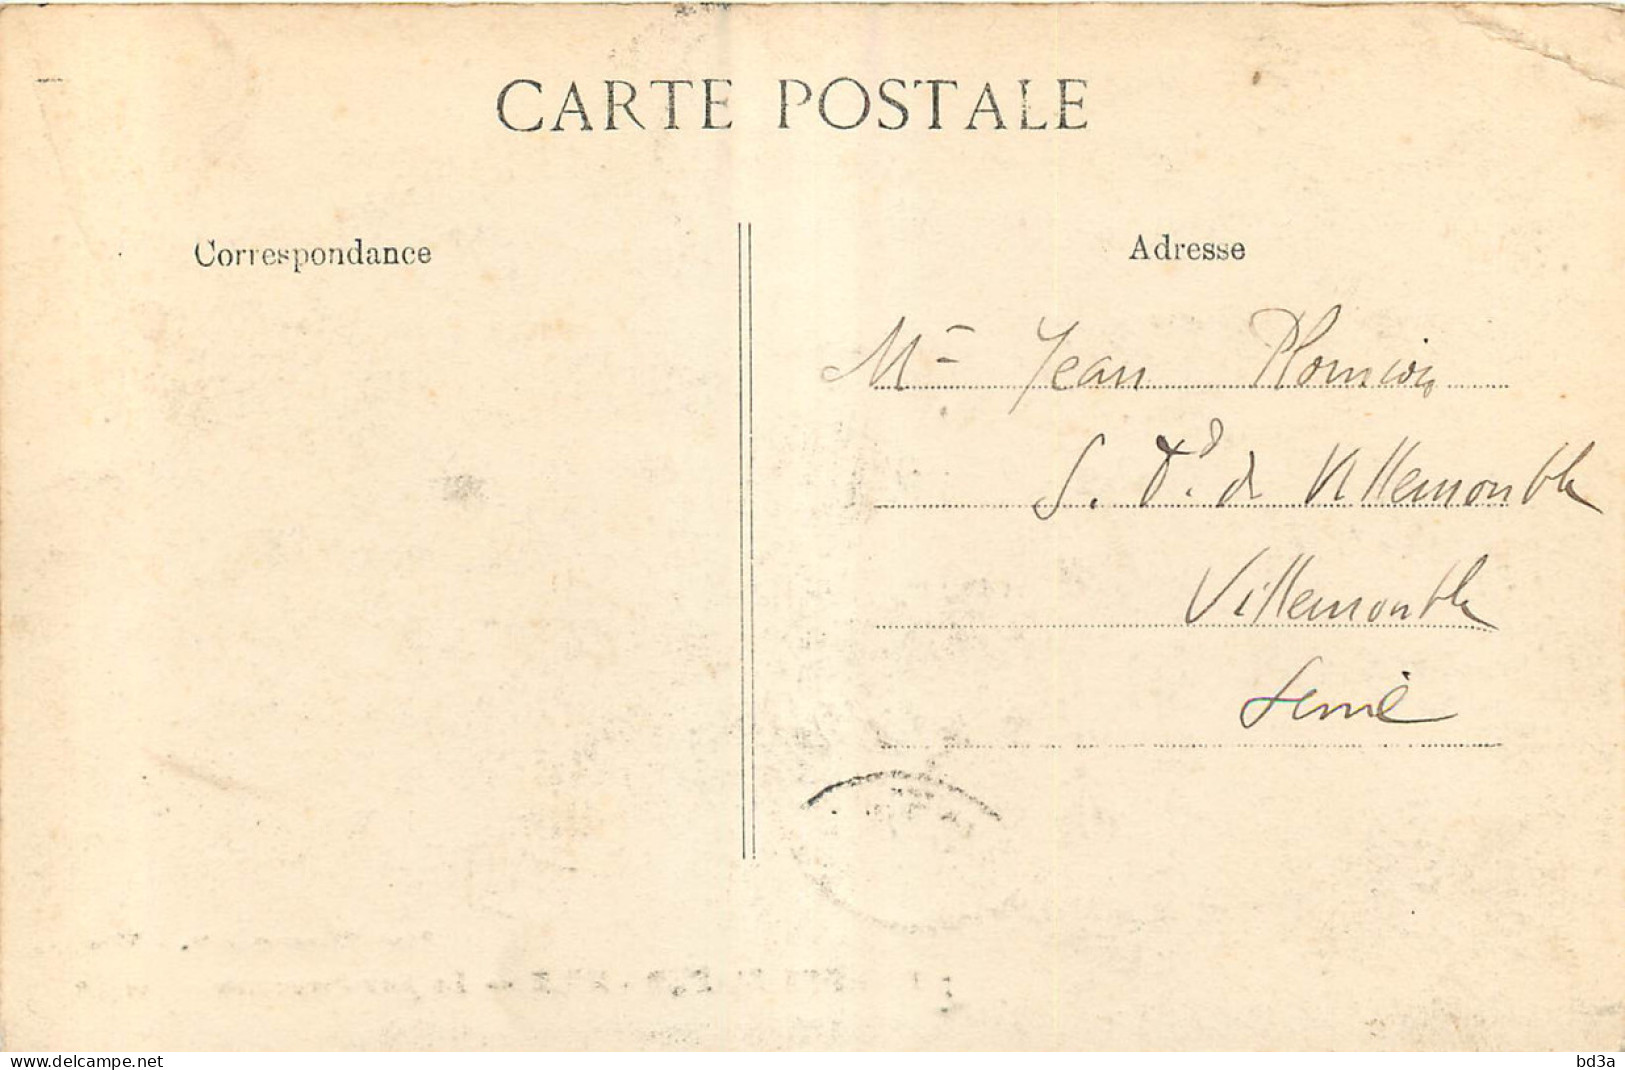 CARTE POSTALE
Correspondance
Adresse
M= Jean
S. de Villemomble
Villemomble
Seine
www.delcampe.net
bd3a